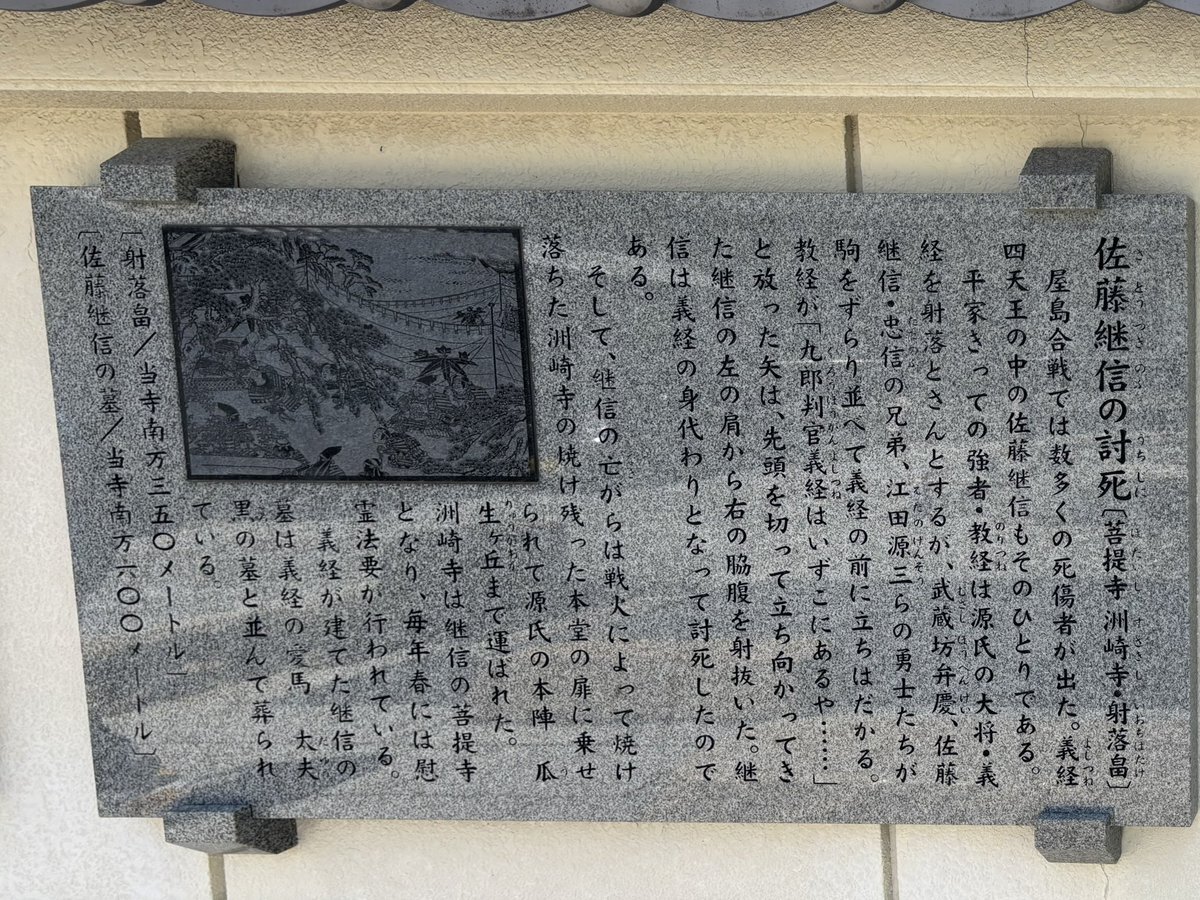 佐藤継信の討死〔菩提寺 洲崎寺・射落畠〕
屋島合戦では数多くの死傷者が出た。義経
四天王の中の佐藤継信もそのひとりである。
平家きっての強者・教経は源氏の大将・義
経を射落とさんとするが、武蔵坊弁慶、佐藤
継信・忠信の兄弟、江田源三らの勇士たちが
駒をずらり並べて義経の前に立ちはだかる。
教経が「九郎判官義経はいずこにあるや……」
と放った矢は、先頭を切って立ち向かってき
た継信の左の肩から右の脇腹を射抜いた。継
信は義経の身代わりとなって討死したので
ある。
そして、継信の亡がらは戦火によって焼け
落ちた洲崎寺の焼け残った本堂の扉に乗せ
られて源氏の本陣 瓜
生ヶ丘まで運ばれた。
洲崎寺は継信の菩提寺
となり、毎年春には慰
霊法要が行われている。
義経が建てた継信の
墓は義経の愛馬 太夫
黒の墓と並んで葬られ
ている。
〔射落畠/当寺南方三五〇メートル〕
〔佐藤継信の墓/当寺南方六〇〇メートル〕